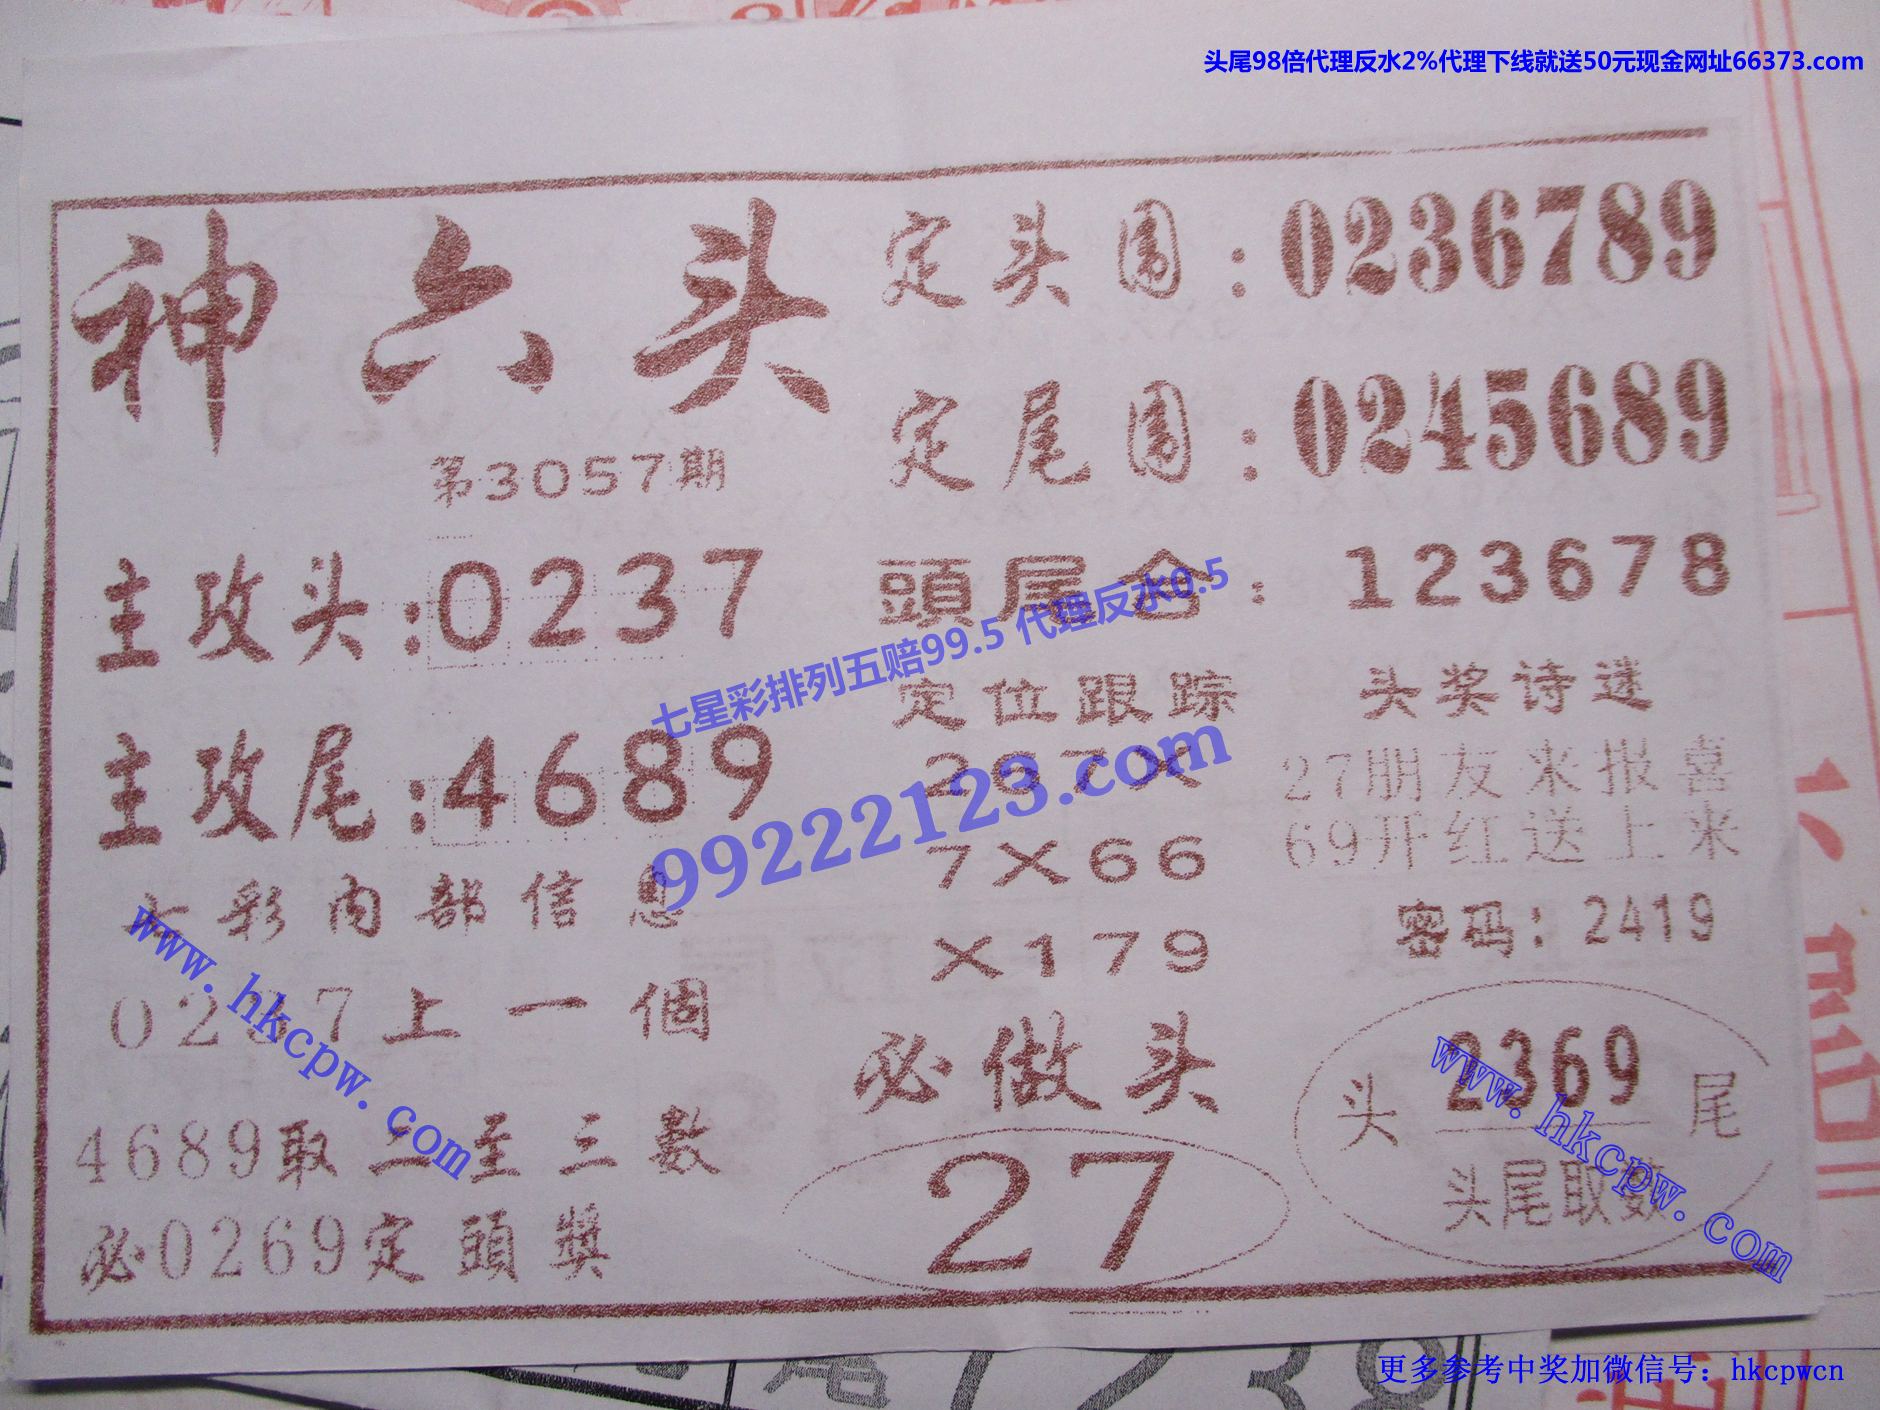 头尾98倍代理反水2%代理下线就送50元现金网址66373.com
神六头
第3057期
定头围:0236789
定尾围:0245689
主攻头:0237
頭尾合:123678
七星彩排列五赔99.5 代理反水0.5
99222123.com
主攻尾:4689
定位跟踪
267X
7X66
X179
头奖诗迷
27朋友来报喜
69开红送上来
密码:2419
七彩内部信息
0237上一個
4689取二至三数
必0269定頭獎
必做头
27
头 2369 尾
头尾取数
www.hkcpw.com
www.hkcpw.com
尾1238
更多参考中奖加微信号:hkcpwcn